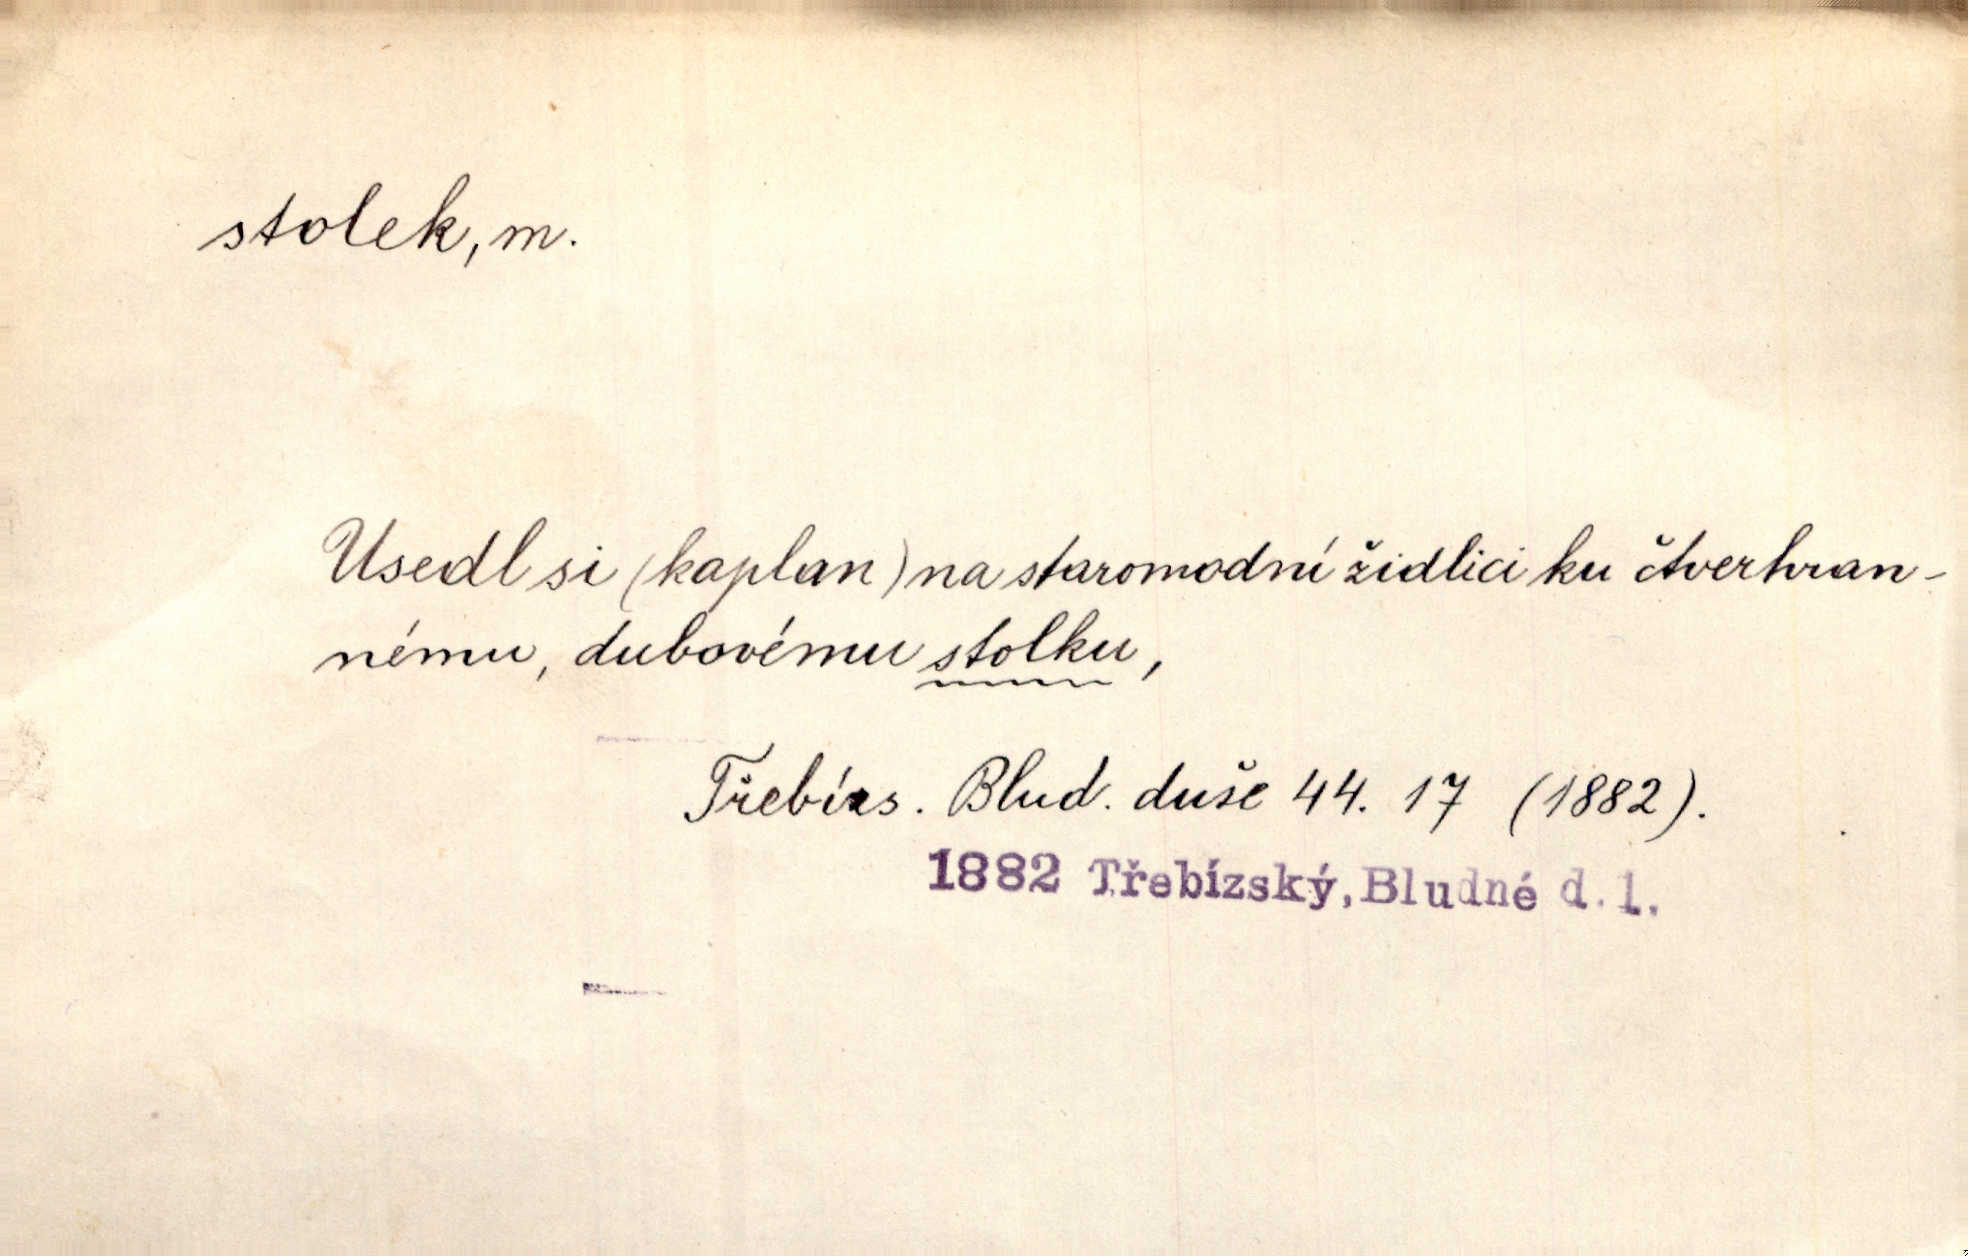 stolek, m.
Usedl si (kaplan) na staromodní židlici ku čtverhran-
nému, dubovému stolku,
Třebízs. Blud. duše 44. 17 (1882).
1882 Třebízský, Bludné d. 1.